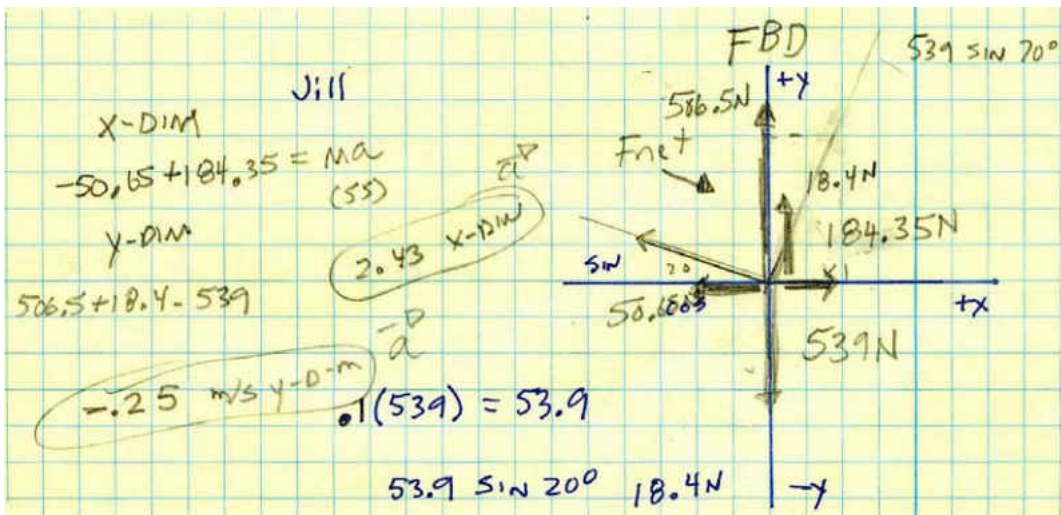 Jill
X-DIM
-50,65 + 184.35 = ma
(55)
Y-DIM
506.5 + 18.4 - 539
2.43 X-DIM
a
-.25 m/s y-D-m
a
.1(539) = 53.9
53.9 SIN 20° 18.4N
FBD
539 SIN 70°
+y
506.5N
Fnet
18.4N
184.35N
SIN
20
+x
539N
-y